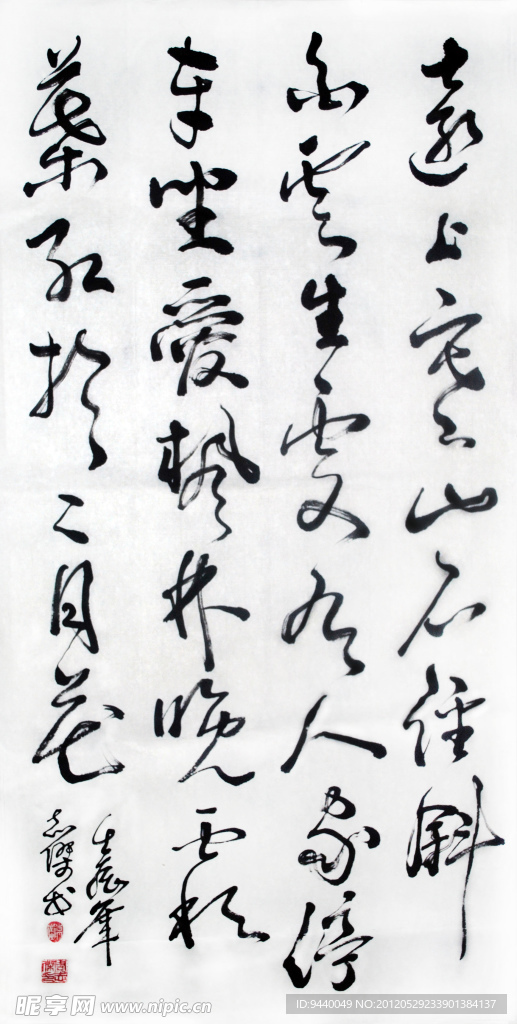 遠上寒山石徑斜
白雲生處有人家停
車坐愛楓林晚霜
葉紅於二月花
昵享网 www.nipic.cn
ID:9440049 NO:20120529233901384137